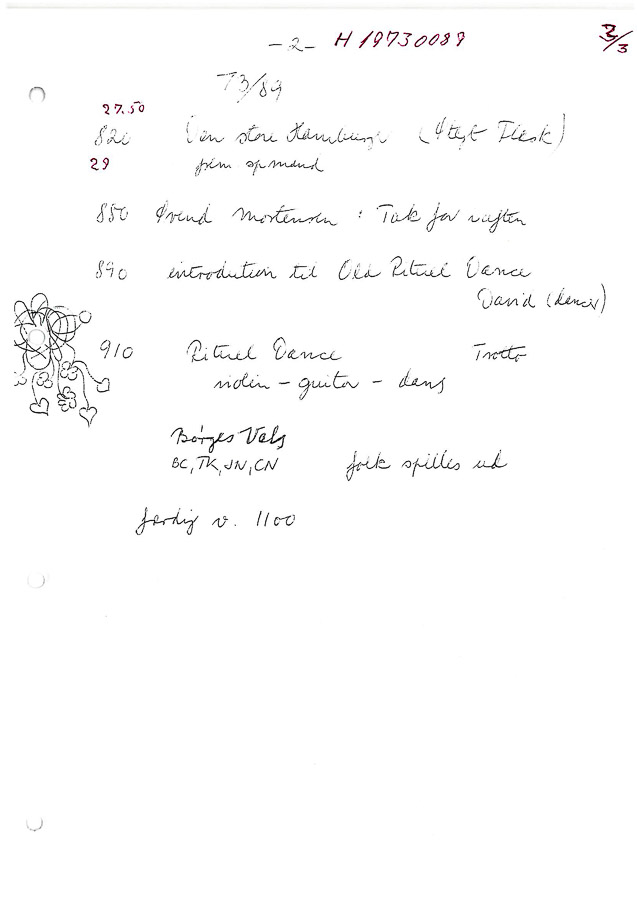 - 2 - H 19730089 3/3
73/89
27.50
820 Den store Hamburger (Stegt Flesk)
29 frem spmand
850 Svend Mortensen : Tak for natten
890 introdution til Old Rituel Dance
David (danser)
910 Rituel Dance Trotto
violin - guitar - dans
Børges Vals
BC, TK, JN, CN folk spilles ud
færdig v. 1100